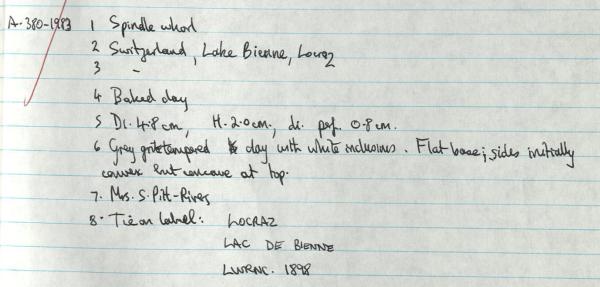 A.380-1983 1 Spindle whorl
2 Switzerland, Lake Bienne, Locraz
3 -
4 Baked clay
5 Di. 4.8cm, H. 2.0cm, di. perf. 0.8cm.
6 Grey grit tempered clay with white inclusions. Flat base; sides initially
convex but concave at top.
7. Mrs. S. Pitt-Rivers
8. Tie on label: LOCRAZ
LAC DE BIENNE
1898